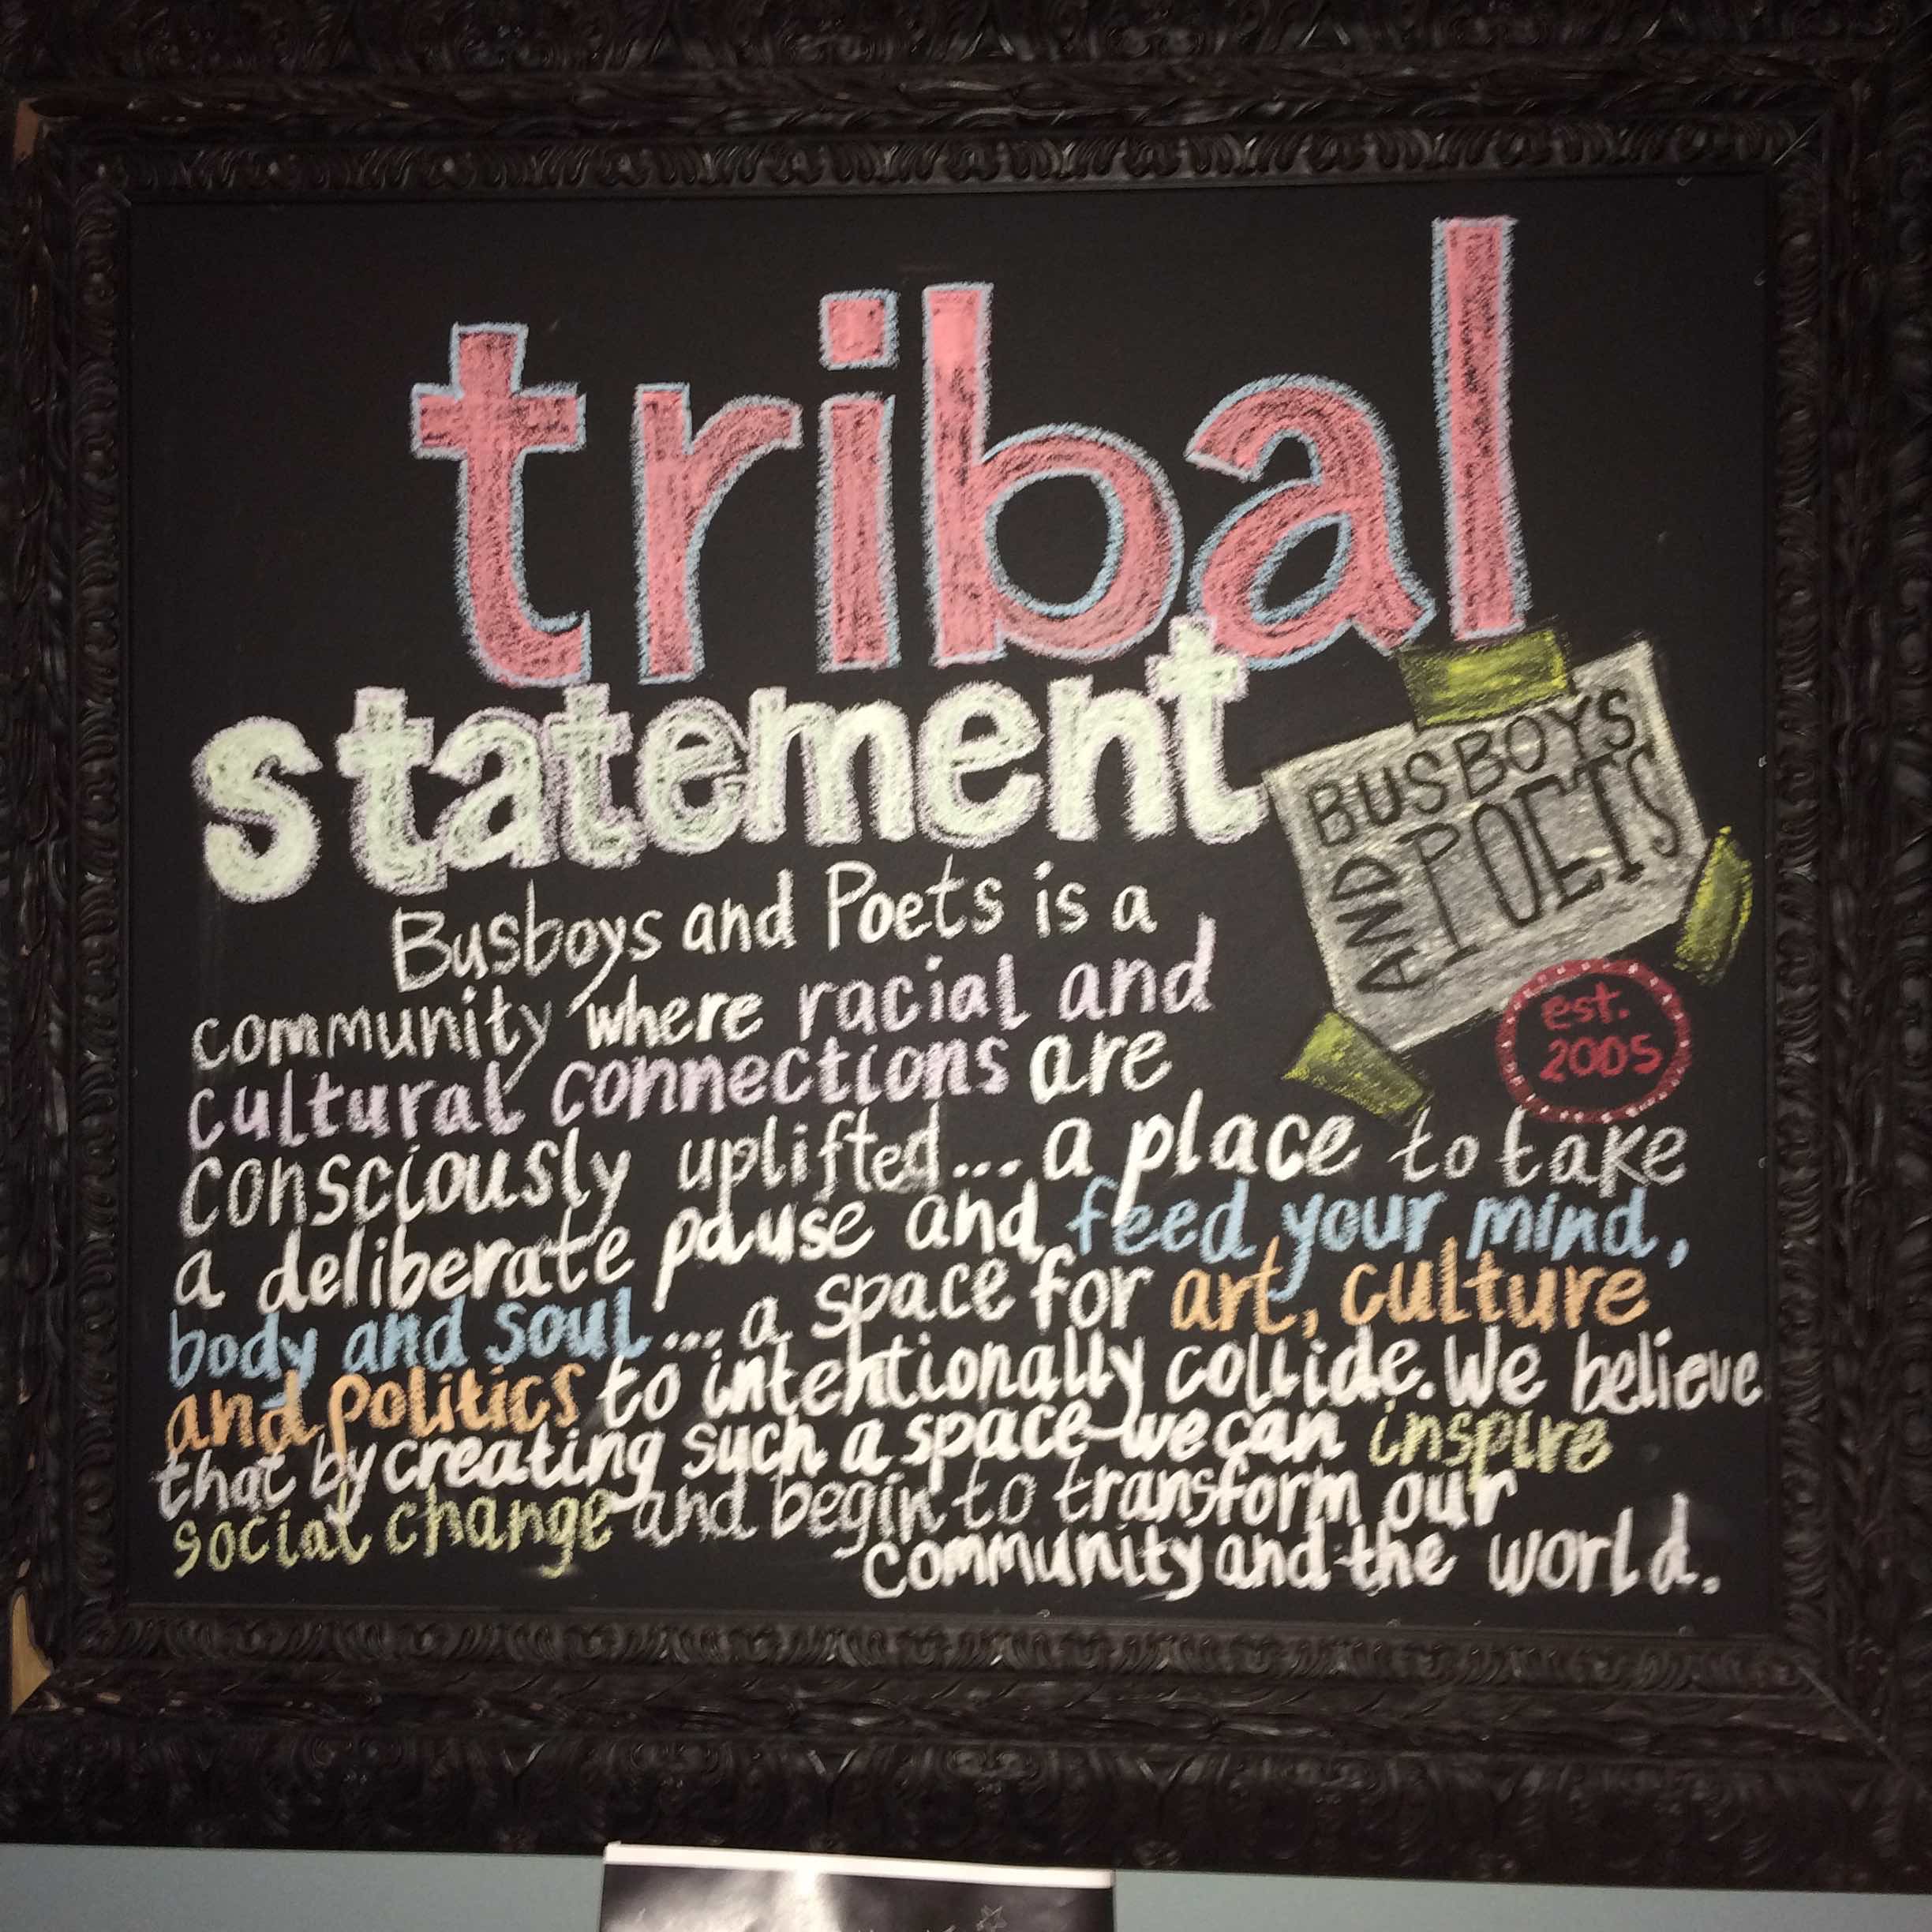 tribal
statement
BUSBOYS
AND POETS
est.
2005
Busboys and Poets is a
community where racial and
cultural connections are
consciously uplifted... a place to take
a deliberate pause and feed your mind,
body and soul... a space for art, culture
and politics to intentionally collide. We believe
that by creating such a space we can inspire
social change and begin to transform our
community and the world.